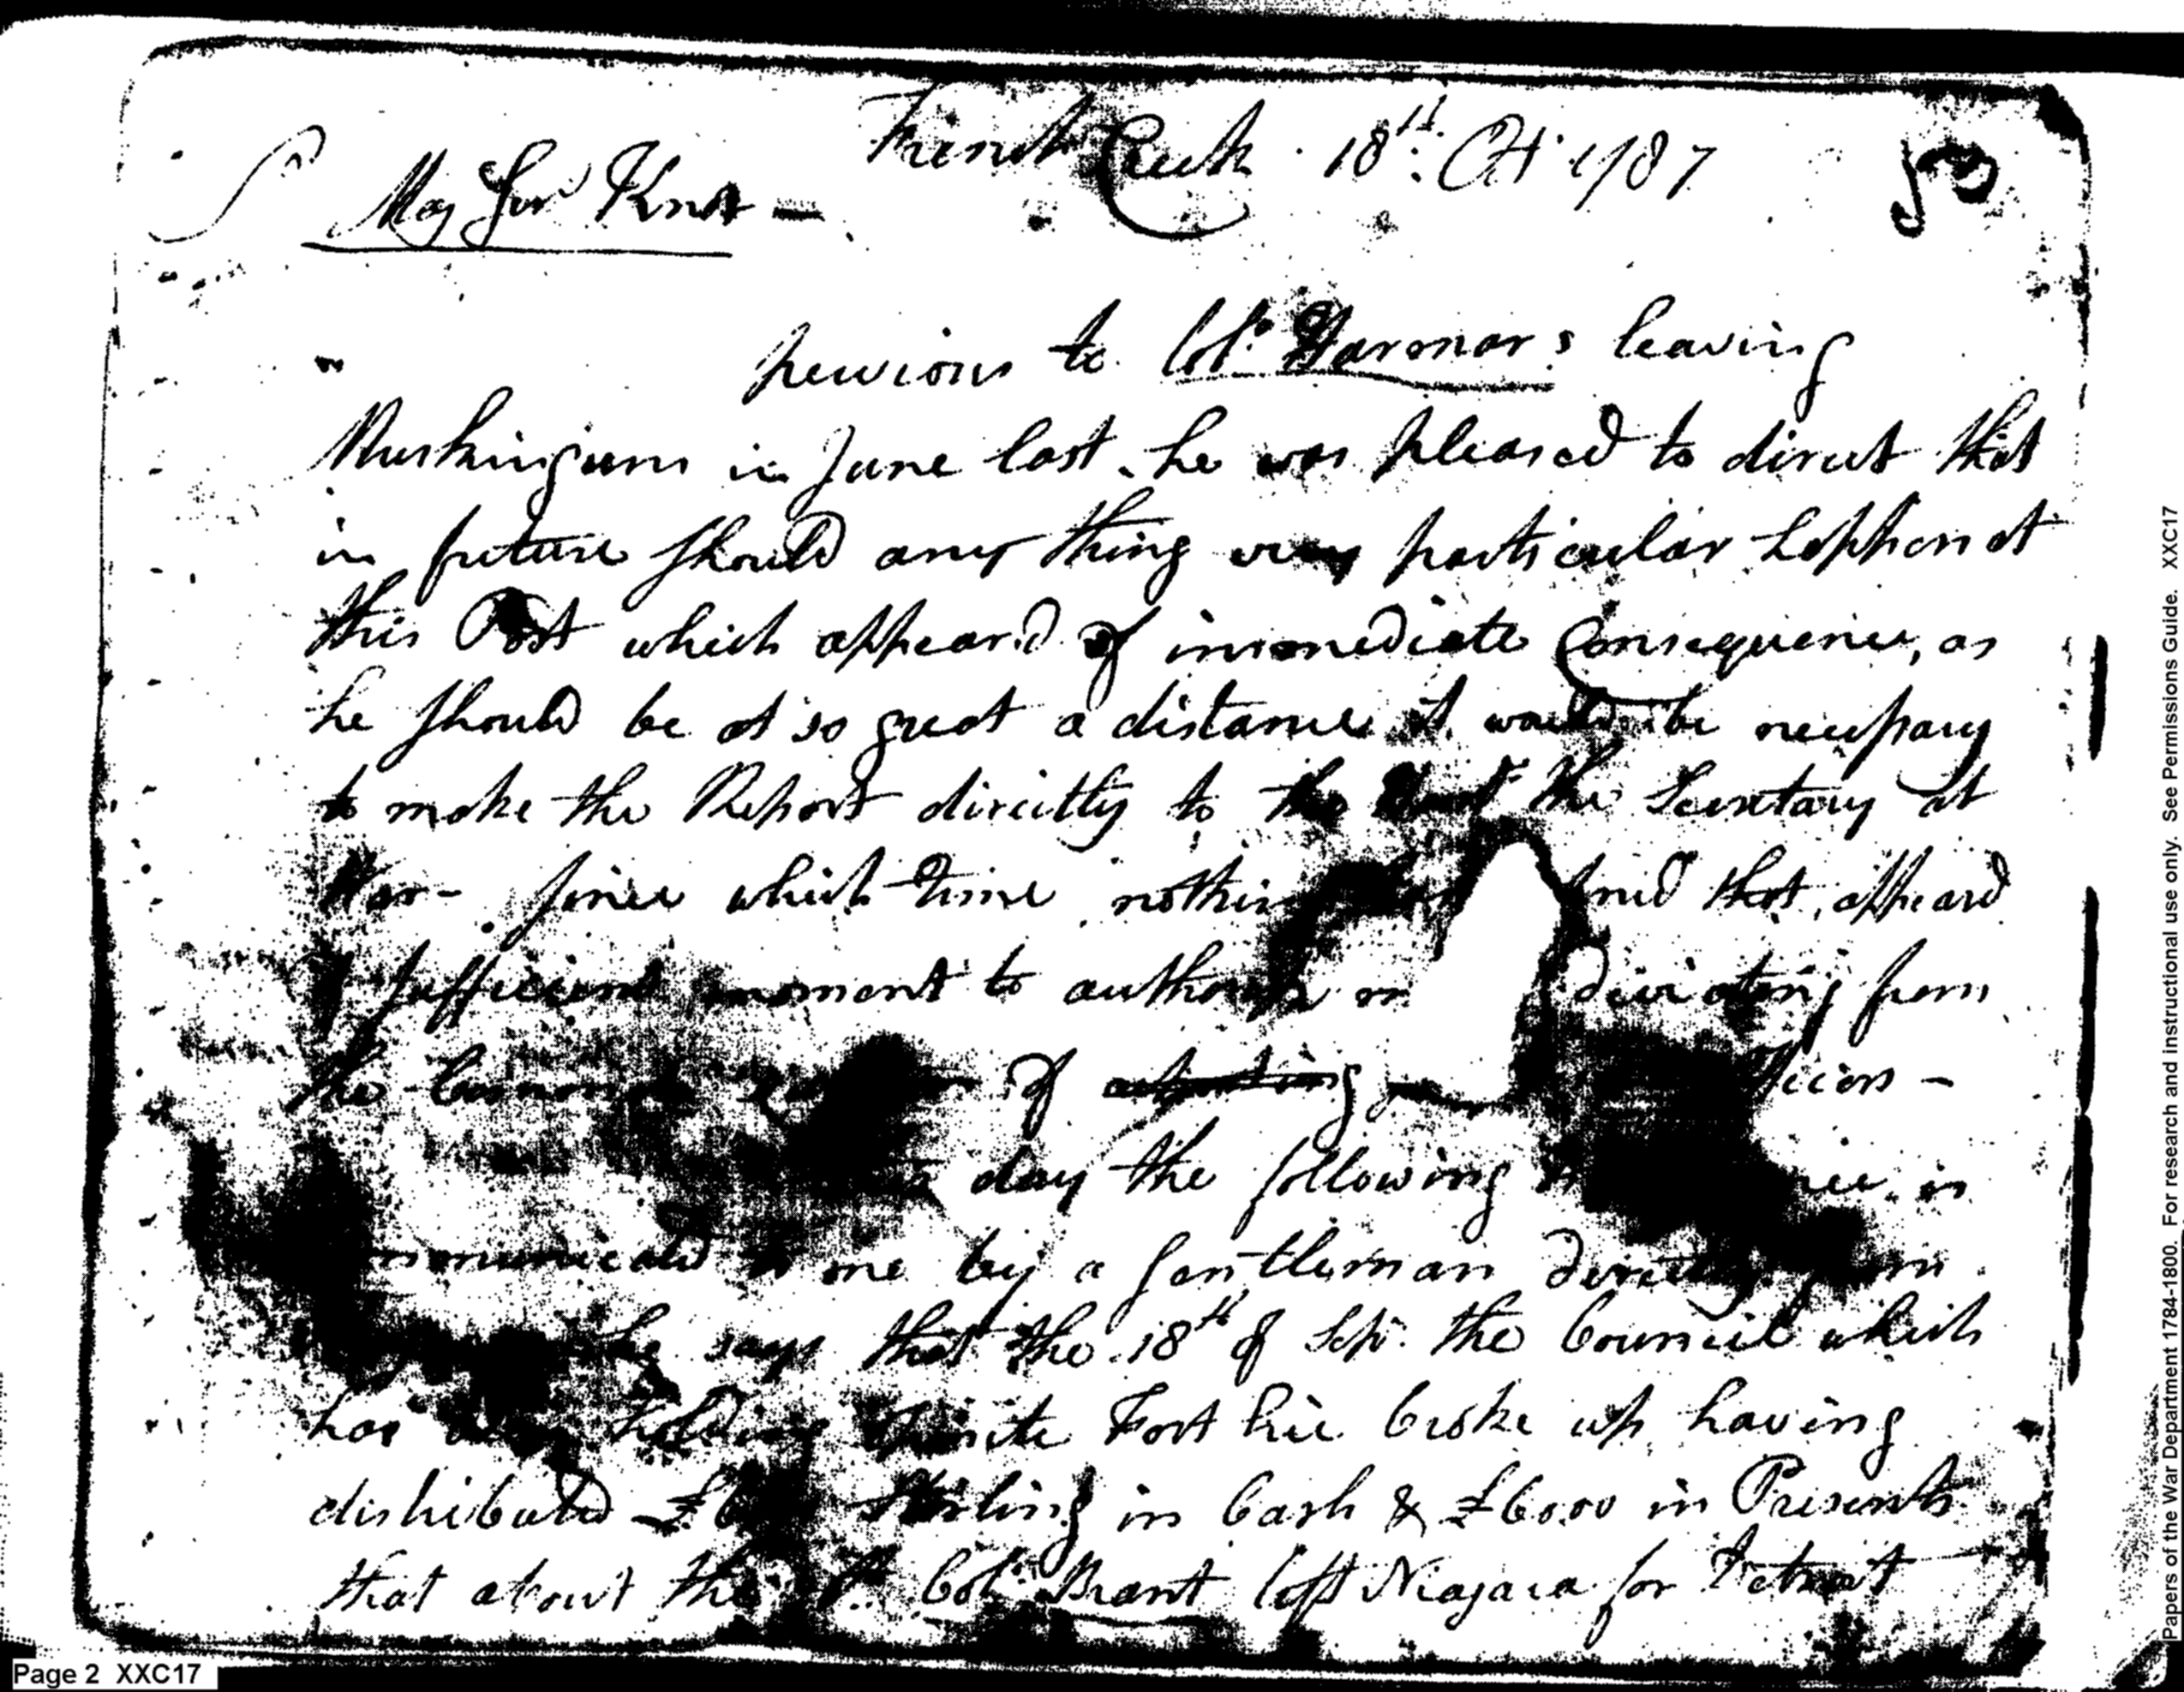 French Creek 18th. Oct 1787
53
Maj Genl Knox —
previous to Col. Harmar's leaving
Muskingum in June last he was pleased to direct that
in future should any thing very particular happen at
this Post which appear'd of immediate Consequence, as
he should be at so great a distance it would be necessary
to make the Report directly to the the Secretary at
War - since which time nothing that appeard
sufficient moment to deviating from
the of
day the following is
me by a Gentleman directly from
he says that the 18th of Sepr. the Council which
has been holding opposite Fort Erie broke up having
distributed Sterling in Cash & £6000 in Presents
that about the Col. Brant left Niagara for Detroit
Page 2 XXC17
Papers of the War Department 1784-1800. For research and instructional use only. See Permissions Guide. XXC17